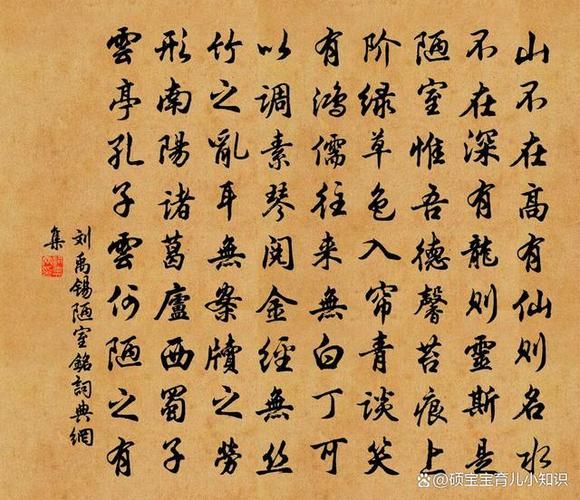 山不在高有仙则名水
不在深有龍则靈斯是
陋室惟吾德馨苔痕上
阶绿草色入帘青談笑
有鸿儒往来無白丁可
以调素琴阅金經無丝
竹之亂耳無案牘之劳
形南陽诸葛廬西蜀子
雲亭孔子雲何陋之有
刘禹锡陋室銘詞典網
集
@硕宝宝育儿小知识